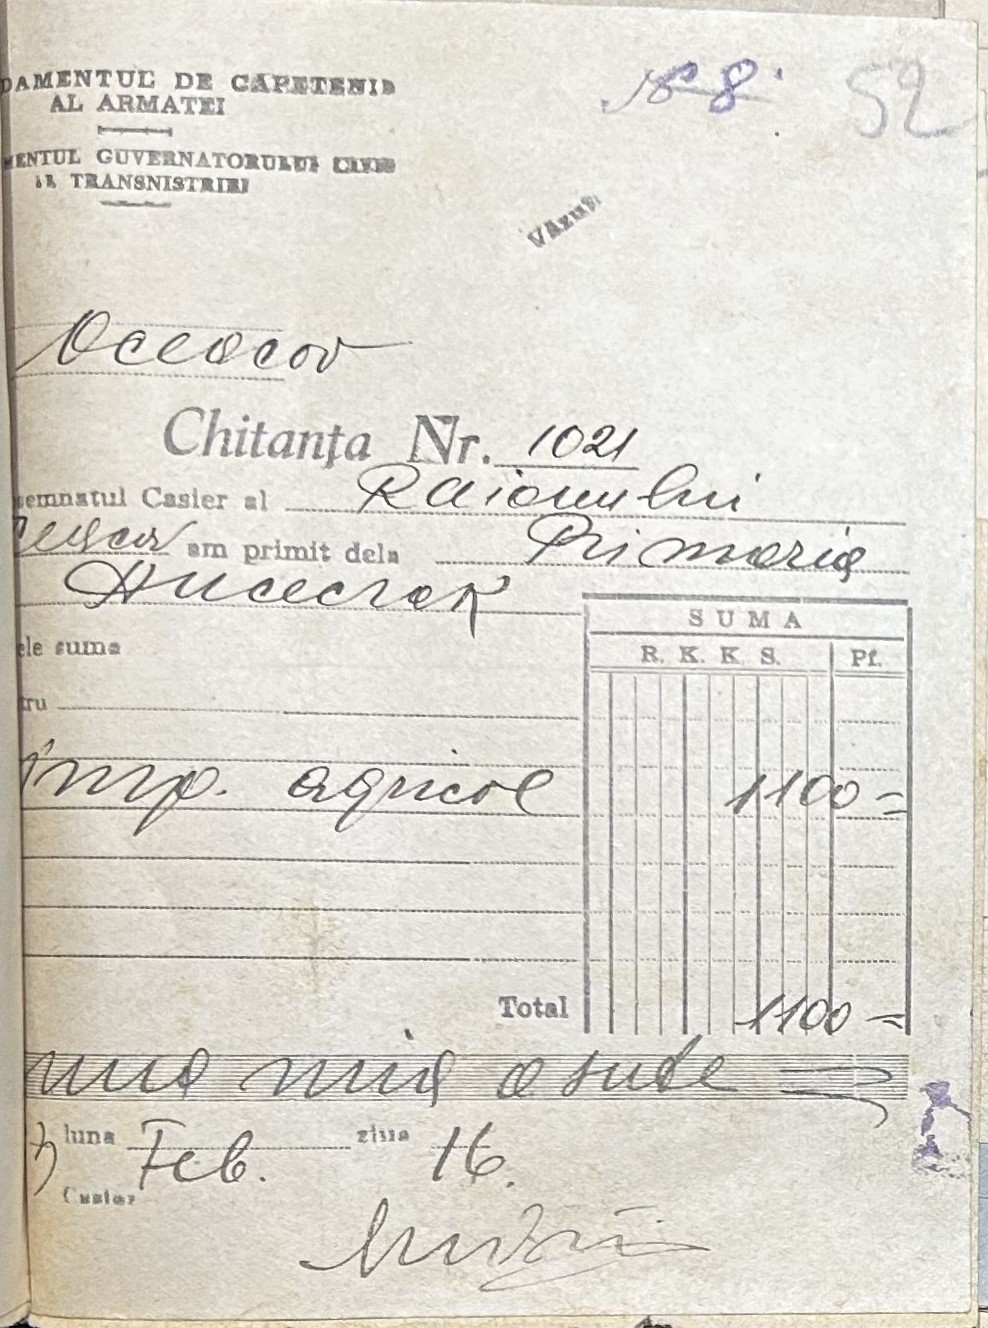 DAMENTUL DE CAPETENIE
AL ARMATEI
№ 8.
52
MENTUL GUVERNATORULUI CIVIL
AL TRANSNISTRIEI
Văzut:
Oceacov
Chitanța Nr. 1021
semnatul Casier al Raionului
am primit dela Primăria
SUMA
ele suma
R. K. K. S. Pf.
tru
imp. agricol 1100 =
Total 1100 =
una mie a sute =
luna Feb. ziua 16.
Casier